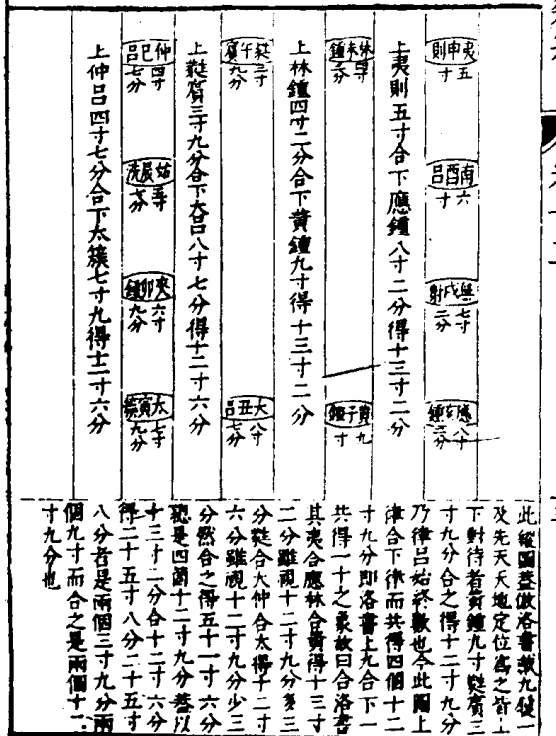 夷申則 五寸 南酉呂 六寸 無戌射 七寸二分 應亥鍾 八寸二分
上夷則五寸合下應鍾八寸二分得十三寸二分
林未鍾 四寸二分 黃子鍾 九寸
上林鍾四寸二分合下黃鐘九寸得十三寸二分
蕤午賓 三寸九分 大丑呂 八寸七分
上蕤賓三寸九分合下大呂八寸七分得十二寸六分
仲巳呂 四寸七分 姑辰洗 夾卯鍾 六寸九分 太寅簇 七寸九分
上仲呂四寸七分合下太簇七寸九得十二寸六分
此縱圖蓋倣洛書戴九履一
及先天天地定位為之皆上
下對待者黃鐘九寸蕤賓三
寸九分合之得十二寸九分
乃律呂始終數也今此圖上
律合下律而共得四個十二
寸九分即洛書上九合下一
共得一十之象故曰合洛書
其夷合應林合黃得十三寸
二分雖視十二寸九分多三
分蕤合大仲合太得十二寸
六分雖視十二寸九分少三
分然合之得五十一寸六分
總是四箇十二寸九分蓋以
十三寸二分合十二寸六分
得二十五寸八分二十五寸
八分者是兩個三寸九分兩
個九寸而合之是兩個十二
寸九分也